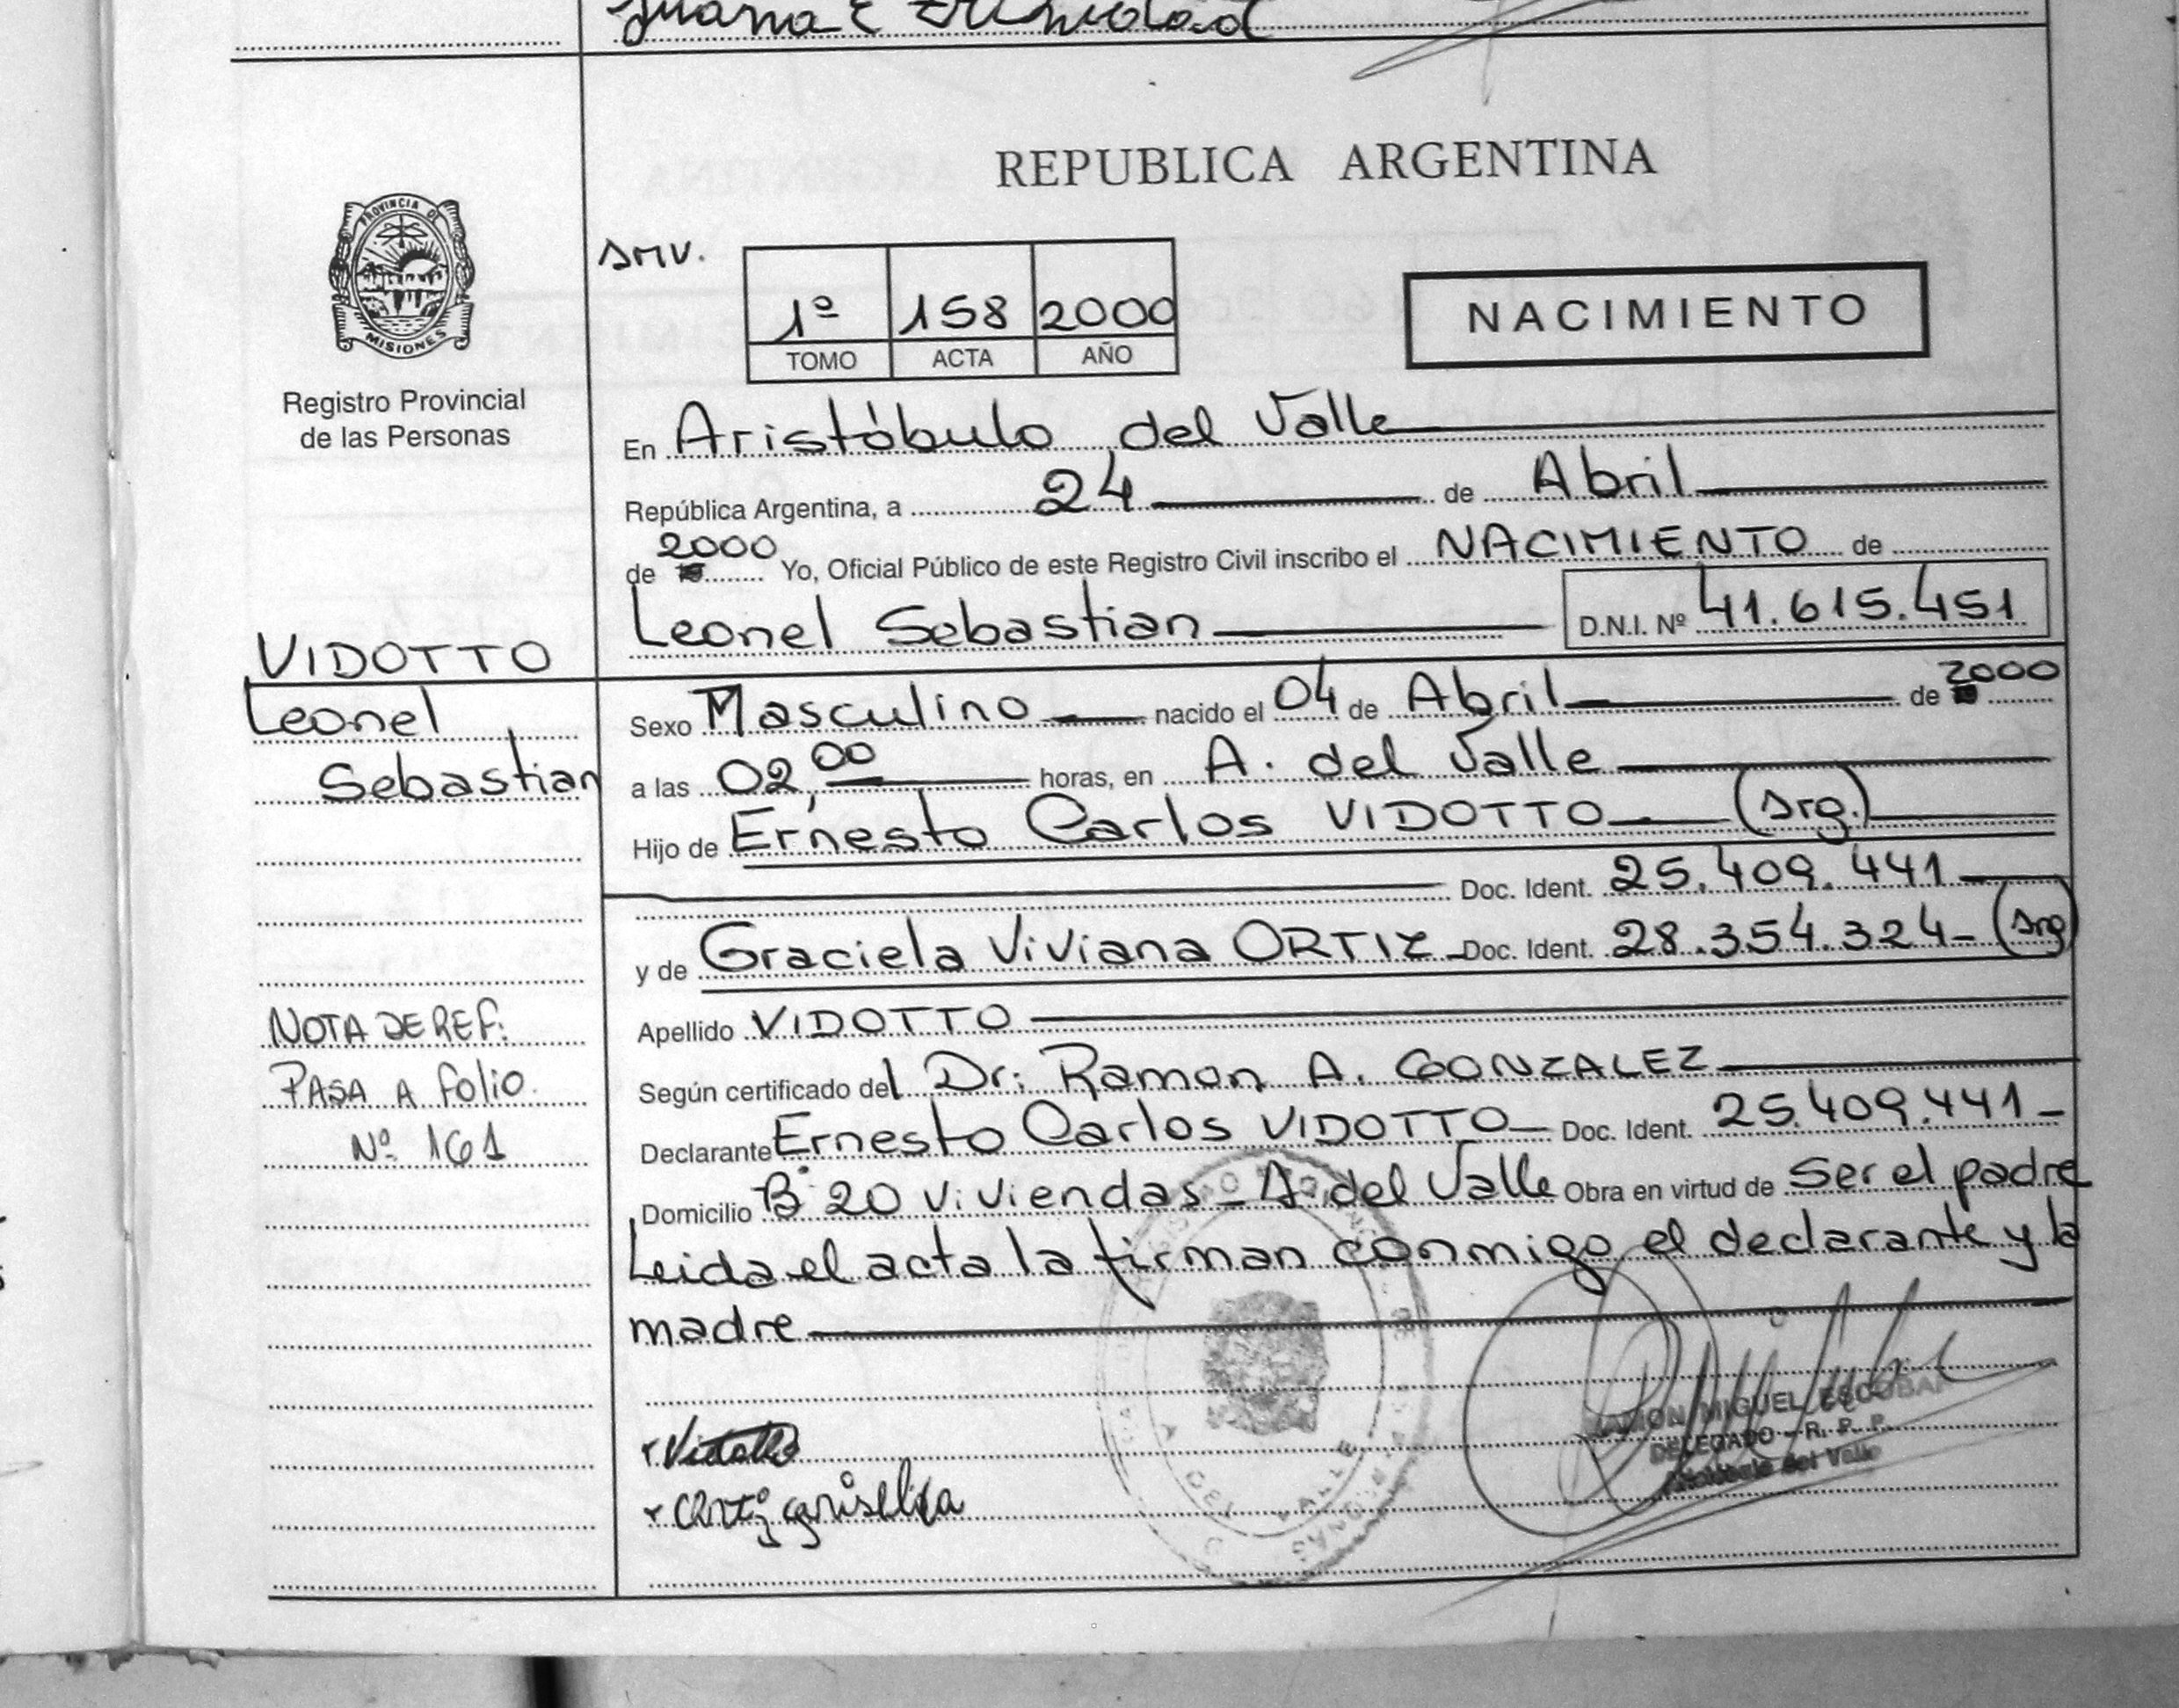 Juana E Trinidad
REPUBLICA ARGENTINA
PROVINCIA DE
MISIONES
Registro Provincial
de las Personas
SMV.
1º 158 2000
TOMO ACTA AÑO
NACIMIENTO
En Aristóbulo del Valle
República Argentina, a 24 de Abril
de 2000 Yo, Oficial Público de este Registro Civil inscribo el NACIMIENTO de
Leonel Sebastian D.N.I. Nº 41.615.451
VIDOTTO
Leonel
Sebastian
Sexo Masculino nacido el 04 de Abril de 2000
a las 02,00 horas, en A. del Valle
Hijo de Ernesto Carlos VIDOTTO (Arg.)
Doc. Ident. 25.409.441
y de Graciela Viviana ORTIZ Doc. Ident. 28.354.324 (Arg)
Apellido VIDOTTO
Según certificado del Dr: Ramon A. GONZALEZ
Declarante Ernesto Carlos VIDOTTO Doc. Ident. 25.409.441
Domicilio B: 20 Viviendas - A. del Valle Obra en virtud de Ser el padre
Leida el acta la firman conmigo el declarante y la
madre
NOTA DE REF:
PASA A folio.
Nº 161
Vidotto
Ortiz
RAMON MIGUEL ESCOBAR
DELEGADO - R. P. P.
Aristóbulo del Valle
DEL VALLE